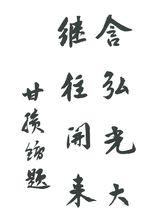 含弘光大
继往開来
甘绩镛题